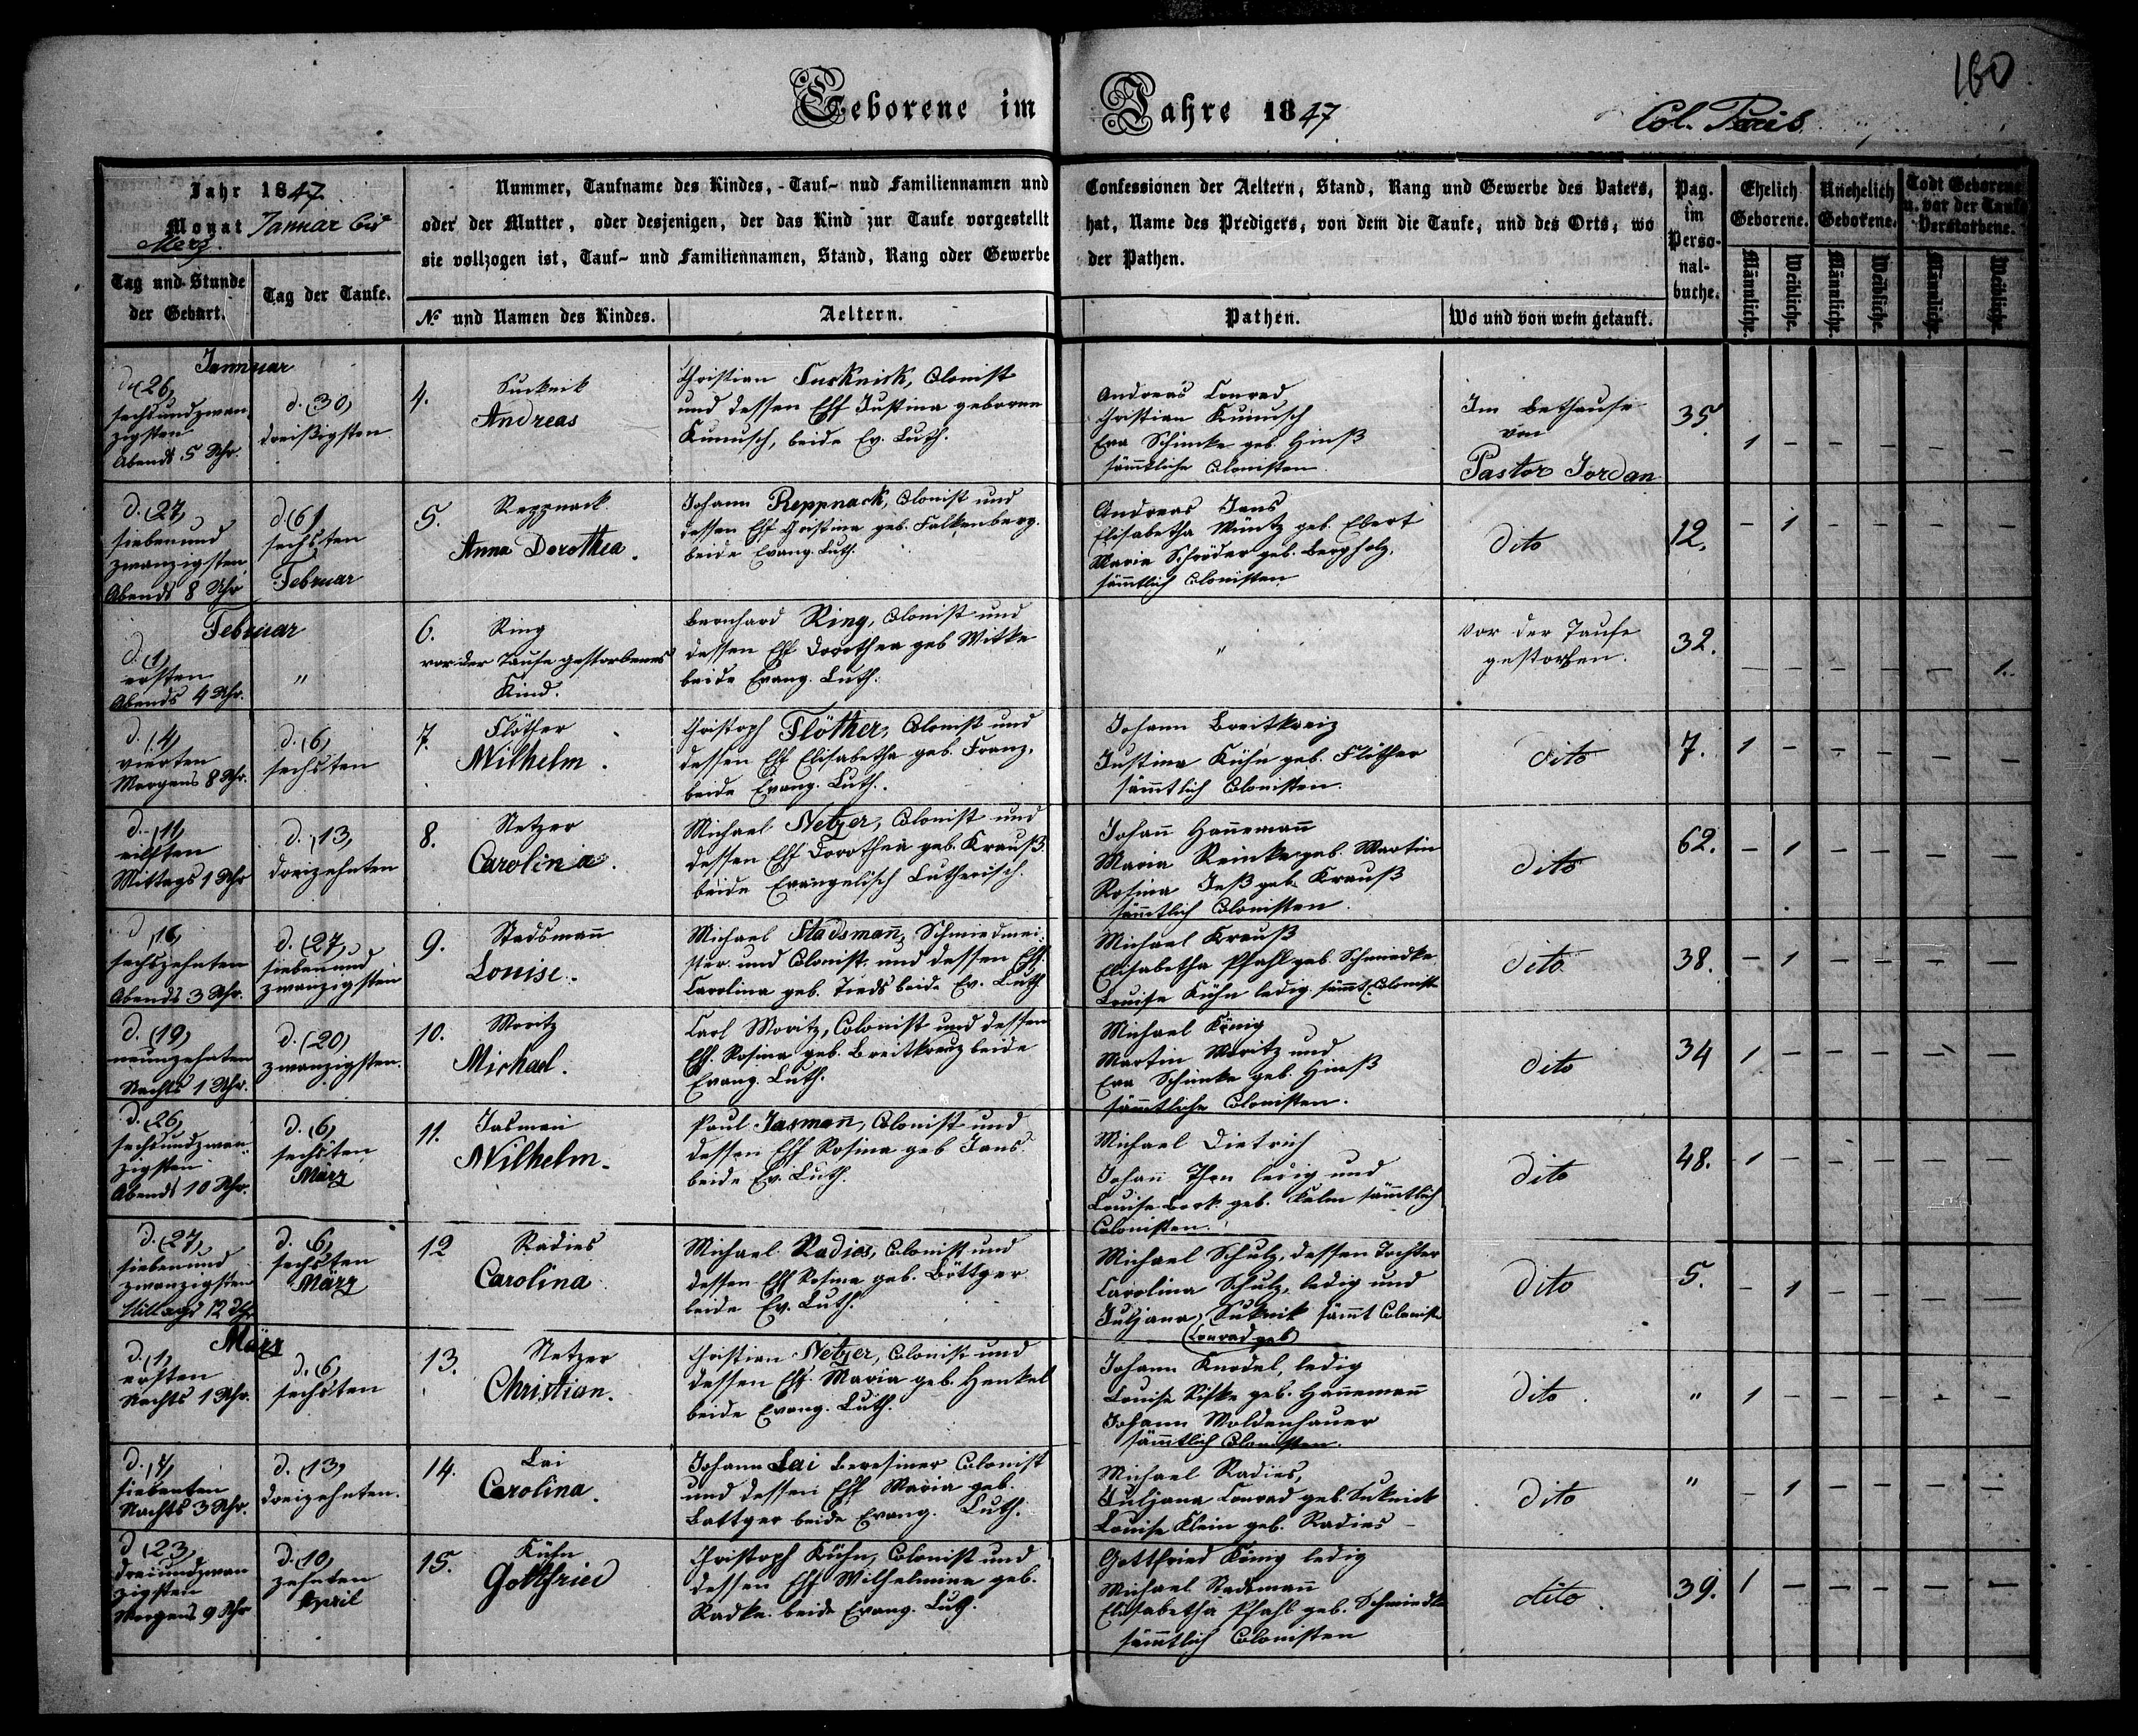 160
Geborene im Jahre 1847
Col. Paris
Jahr 1847.
Monat Januar bis
Merz.
Tag und Stunde
der Geburt.
Tag der Taufe.
Nummer, Taufname des Kindes, - Tauf- nud Familiennamen und
oder der Mutter, oder desjenigen, der das Kind zur Taufe vorgestellt
sie vollzogen ist, Tauf- und Familiennamen, Stand, Rang oder Gewerbe
№ und Namen des Kindes.
Aeltern.
Confessionen der Aeltern, Stand, Rang und Gewerbe des Vaters,
hat, Name des Predigers, von dem die Taufe, und des Orts, wo
der Pathen.
Pathen.
Wo und von wem getauft.
Pag.
im
Perso-
nal-
buche.
Ehelich
Geborene.
Unehelich
Geborene.
Todt Geborene
u. vor der Taufe
Verstorbene.
Männliche.
Weibliche.
Männliche.
Weibliche.
Männliche.
Weibliche.
Januar
d. (26)
sechsundzwan
zigsten
Abends 5 Uhr.
d. (30)
dreißigsten
4.
Sucknik
Andreas
Christian Sucknick, Colonist
und dessen Ehf Justina geborne
Kunusch, beide Ev. Luth.
Andreas Conrad
Christian Kunusch
Eva Schimke geb. Hinß
sämmtliche Colonisten
Im Bethause
von
Pastor Jordan
35.
1 – – – – –
d. (27)
siebenund
zwanzigsten
Abends 8 Uhr
d. (6)
sechsten
Februar
5.
Reppnack
Anna Dorothea.
Johann Reppnack, Colonist und
dessen Ehf Christina geb. Falkenberg.
beide Evang. Luth.
Andreas Jans
Elisabetha Müntz geb. Ebert
Maria Schröder geb. Bergholz,
sämmtlich Colonisten
dito
12.
– 1 – – – –
Februar
d. (1)
ersten
Abends 4 Uhr.
"
6.
Ring
vor der Taufe gestorbenes
Kind.
Bernhard Ring, Colonist und
dessen Ehf Dorothea geb Witke
beide Evang. Luth.
"
Vor der Taufe
gestorben.
32.
– – – – – 1.
d. (4)
vierten
Morgens 8 Uhr.
d. (6)
sechsten
7.
Flöther
Wilhelm.
Christoph Flöther, Colonist und
dessen Ehf Elisabetha geb. Franz,
beide Evang. Luth.
Johann Breitkreiz
Justina Kühn geb. Flöther
sämmtlich Colonisten.
dito
7.
1 – – – – –
d. (11)
eilften
Mittags 1 Uhr
d. (13)
dreizehnten
8.
Netzer
Carolina.
Michael Netzer, Colonist und
dessen Ehf Dorothea geb. Krauß
beide Evangelisch Lutherisch.
Johañ Hañemañ
Maria Reinke geb. Martin
Rosina Jeß geb. Krauß
sämmtlich Colonisten.
dito
62.
– 1 – – – –
d. (16)
sechszehnten
Abends 3 Uhr.
d. (27)
siebenund
zwanzigsten
9.
Stadsmañ
Louise.
Michael Stadsmañ, Schmiedmei-
ster und Colonist, und dessen Ehf.
Carolina geb. Tieds beide Ev. Luth
Michael Krauß
Elisabetha Pfahl geb. Schmiedke
Louise Kühn ledig. sämmt. Colonist
dito
38.
– 1 – – – –
d. (19)
neunzehnten
Nachts 1 Uhr.
d. (20)
zwanzigsten.
10.
Moritz
Michael.
Carl Moritz, Colonist und dessen
Ehf. Rosina geb. Breitkreuz beide
Evang. Luth.
Michael König
Martin Moritz und
Eva Schimke geb. Hinß
sämmtliche Colonisten.
dito
34
1 – – – – –
d. (26)
sechsundzwan-
zigsten
Abends 10 Uhr.
d. (6)
sechsten
März
11.
Jasman
Wilhelm.
Paul Jasmañ, Colonist und
dessen Ehf Rosina geb Jans
beide Ev. Luth.
Michael Dietrich
Johañ Thon ledig und
Louise Bork geb. Kelm sämmtlich
Colonisten.
dito
48.
1 – – – – –
d. (27)
siebenund
zwanzigsten
Mittags 12 Uhr
d. (6)
sechsten
März
12
Radies
Carolina
Michael Radies, Colonist und
dessen Ehf Rosina geb. Böttger
beide Ev. Luth.
Michael Schulz, dessen Tochter
Carolina Schulz, ledig und
Juljana Suknik sämmt Colonist
(Conrad geb)
dito
5.
– 1 – – – –
März
d. (1)
ersten
Nachts 1 Uhr.
d. (6)
sechsten
13.
Netzer
Christian.
Christian Netzer, Colonist und
dessen Ehf. Maria geb. Henkel
beide Evang. Luth.
Johann Knodel, ledig
Louise Riske geb. Hañemañ
Johann Woldenhauer
sämmtlich Colonisten.
dito.
"
1 – – – – –
d. (7)
siebenten
Nachts 3 Uhr.
d. (13)
dreizehnten.
14.
Lai
Carolina.
Johann Lai Beresiner Colonist
und dessen Ehf Maria geb.
Bättger beide Evang. Luth.
Michael Radies,
Juljana Conrad geb. Suknik
Louise Klein geb. Radies –
dito
"
– 1 – – – –
d. (23)
dreiundzwan
zigsten
Morgens 9 Uhr
d. (10)
zehnten
April
15.
Kühn
Gottfried
Christoph Kühn, Colonist und
dessen Ehf Wilhelmina geb.
Radke beide Evang. Luth.
Gottfried König ledig
Michael Stadsmañ
Elisabetha Pfahl geb. Schmiedke
sämmtlich Colonisten
dito.
39.
1 – – – – –